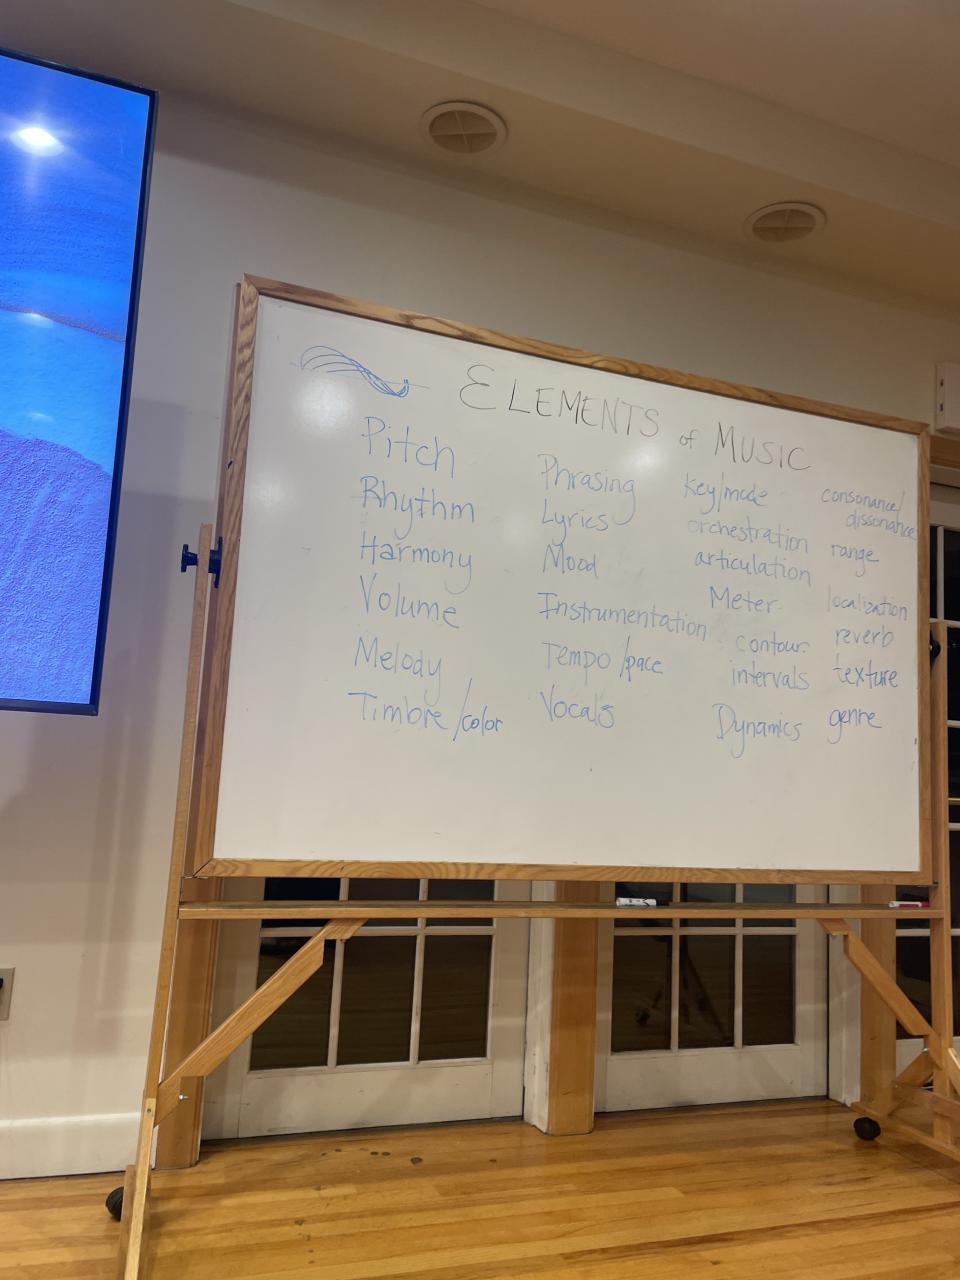 ELEMENTS of MUSIC
Pitch
Rhythm
Harmony
Volume
Melody
Timbre/color
Phrasing
Lyrics
Mood
Instrumentation
Tempo/pace
Vocals
key/mode
orchestration
articulation
Meter
contour
intervals
Dynamics
consonance/
dissonance
range
localization
reverb
texture
genre